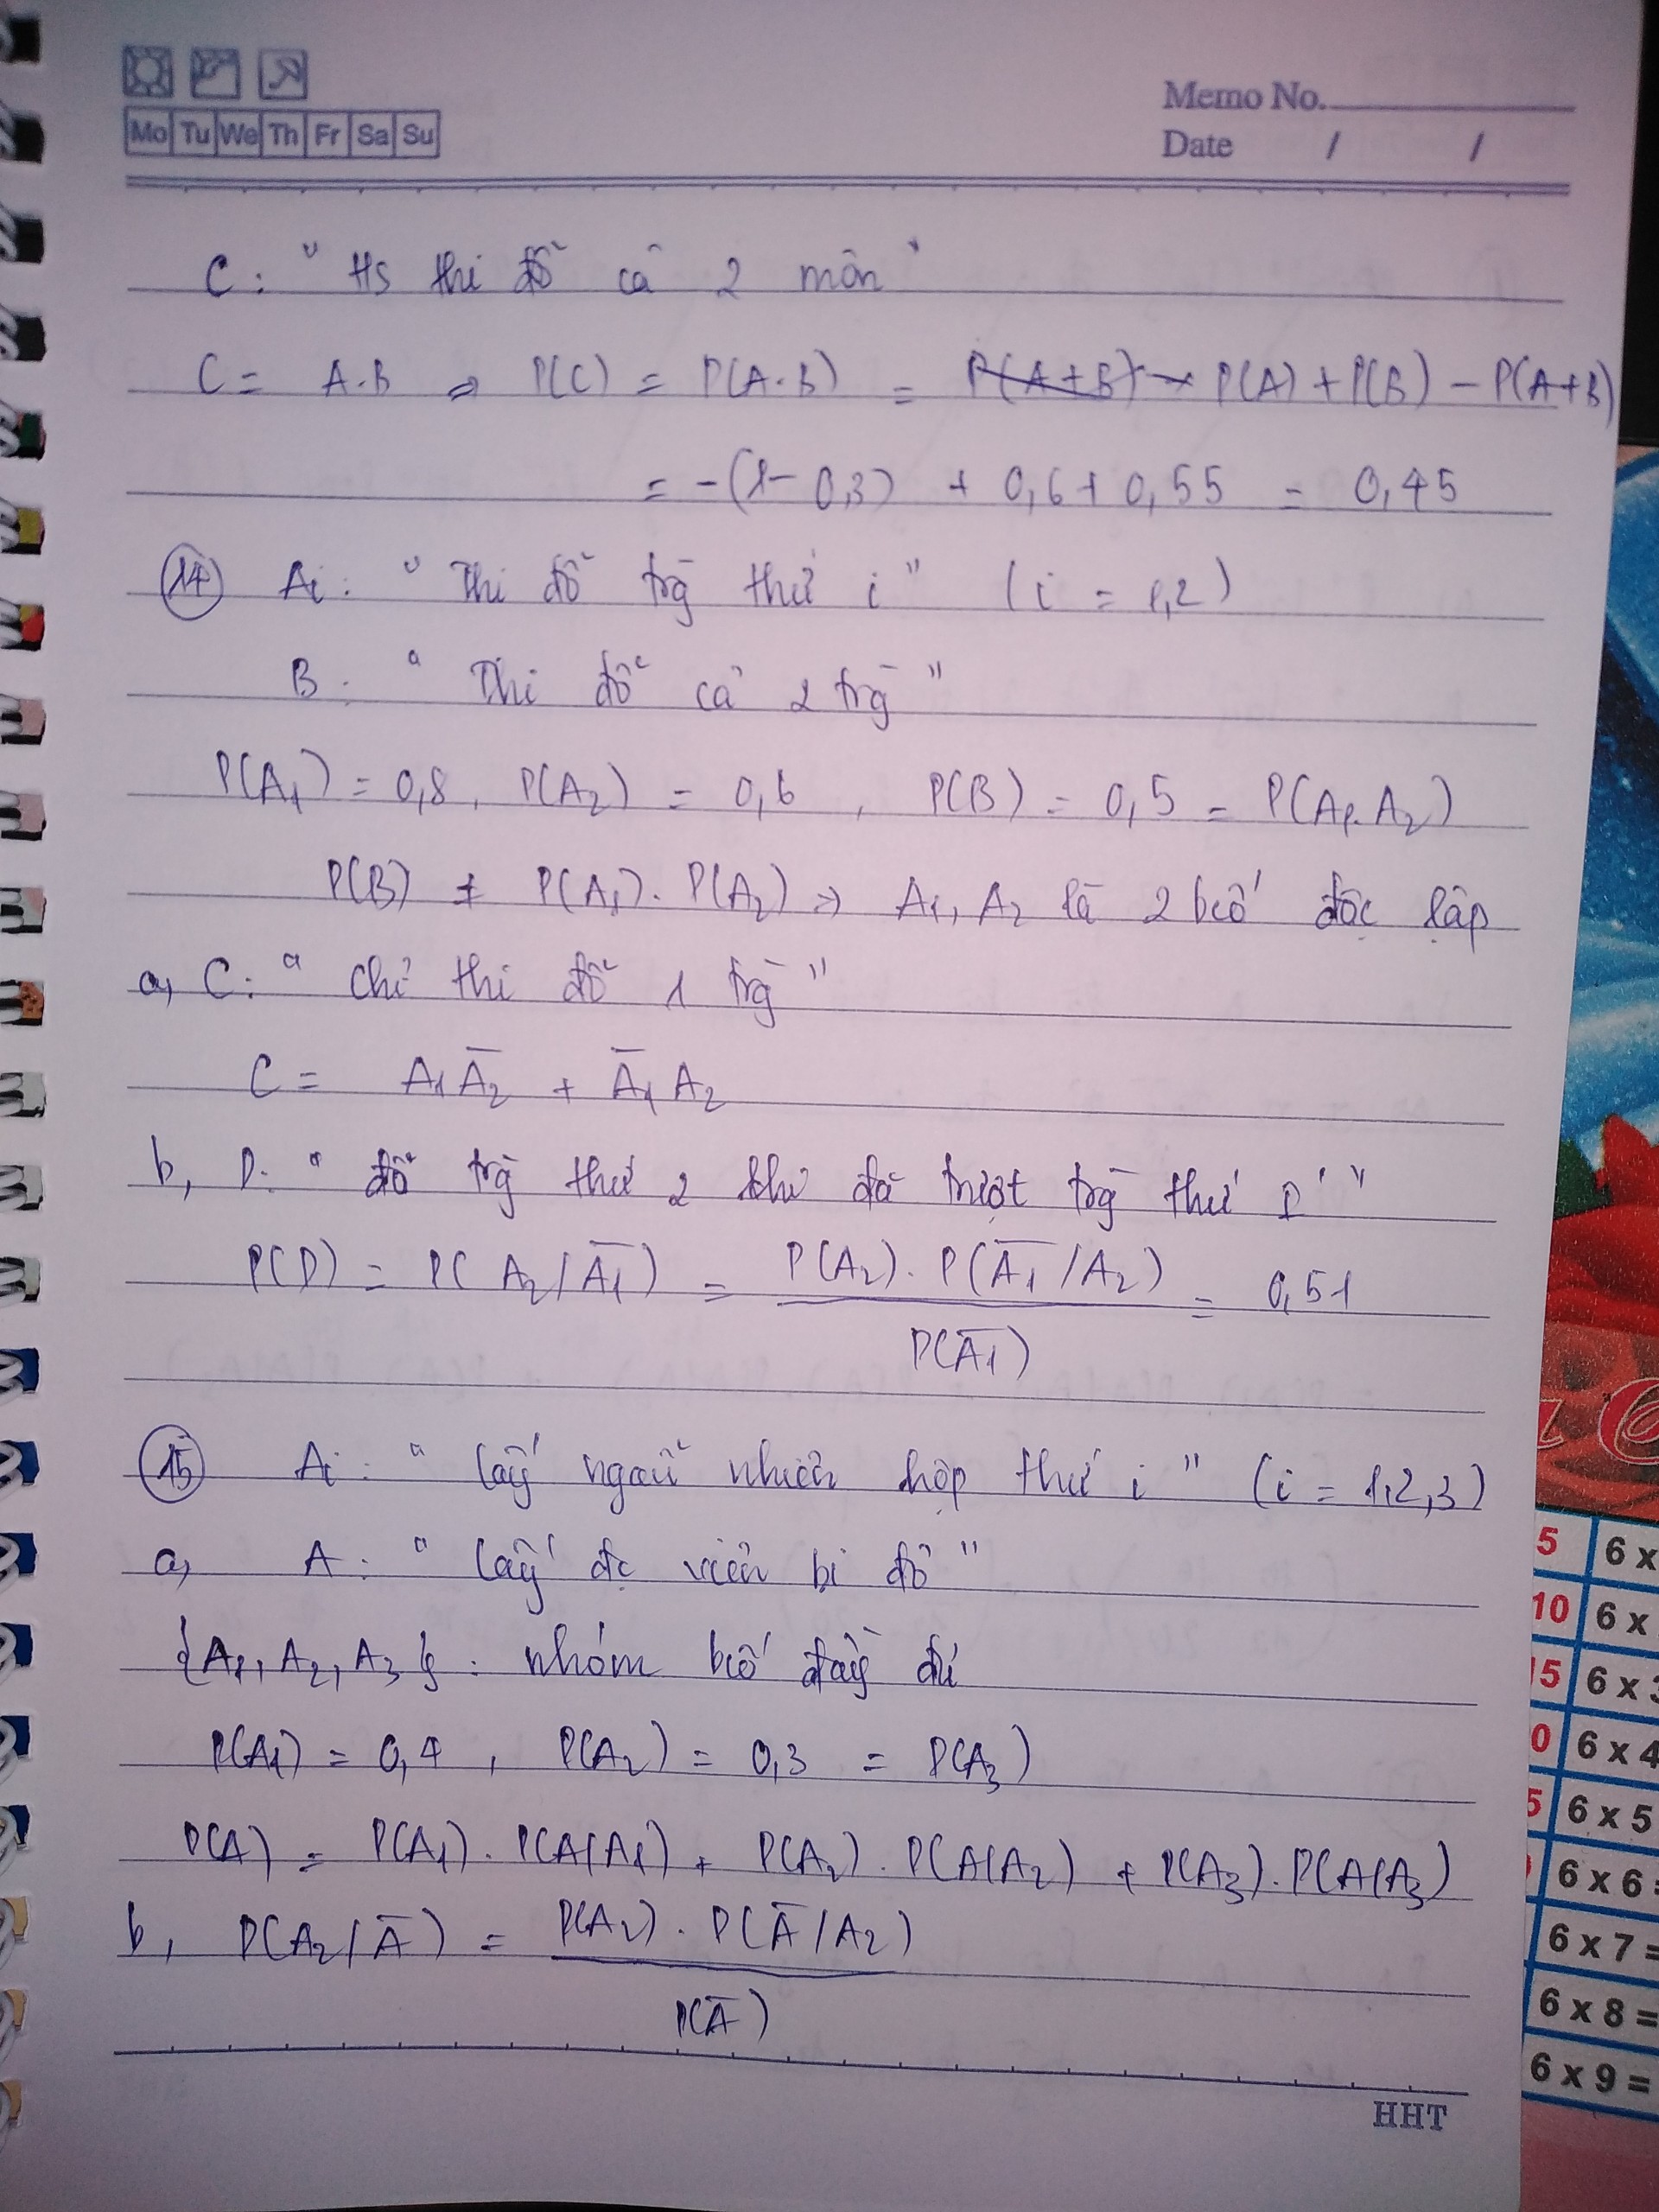 Mo Tu We Th Fr Sa Su
Memo No.
Date / /
C: " HS thi đỗ cả 2 môn "
C = A.B => P(C) = P(A.B) = P(A+B) - P(A) + P(B) - P(A+B)
= -(1-0,3) + 0,6 + 0,55 = 0,45
14 Ai: " Thi đỗ trg thứ i " (i = 1,2)
B: " Thi đỗ cả 2 trg "
P(A1) = 0,8, P(A2) = 0,6, P(B) = 0,5 = P(A1.A2)
P(B) ≠ P(A1).P(A2) => A1, A2 là 2 bcố độc lập
a, C: " Chỉ thi đỗ 1 trg "
C = A1Ā2 + Ā1A2
b, D: " đỗ trg thứ 2 khi đã trượt trg thứ 1 "
P(D) = P(A2/Ā1) = P(A2).P(Ā1/A2) = 0,51
P(Ā1)
15 Ai: " lấy ngẫu nhiên hộp thứ i " (i = 1,2,3)
a, A: " lấy đc viên bi đỏ "
{A1, A2, A3}: nhóm bcố đầy đủ
P(A1) = 0,4, P(A2) = 0,3 = P(A3)
P(A) = P(A1).P(A/A1) + P(A2).P(A/A2) + P(A3).P(A/A3)
b, P(A2/Ā) = P(A2).P(Ā/A2)
P(Ā)
HHT
5 6 x
10 6 x
15 6 x 3
0 6 x 4
5 6 x 5
6 x 6 =
6 x 7 =
6 x 8 =
6 x 9 =